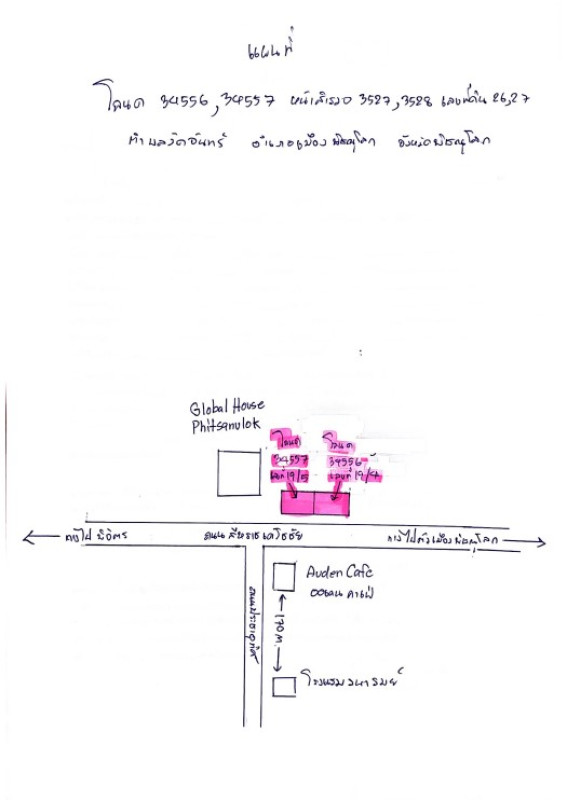 แผนที่
โฉนด 34556, 34557 หน้าสำรวจ 3527, 3528 เลขที่ดิน 26, 27
ตำบลวัดจันทร์ อำเภอเมืองพิษณุโลก จังหวัดพิษณุโลก
Global House
Phitsanulok
โฉนด โฉนด
34557 34556
เลขที่ 19/5 เลขที่ 19/4
ทางไปพิจิตร ถนนสีหราชเดโชชัย ทางไปตัวเมืองพิษณุโลก
Auden Cafe
ออเดน คาเฟ่
ถนนประชาอุทิศ
170 ม.
โรงแรม